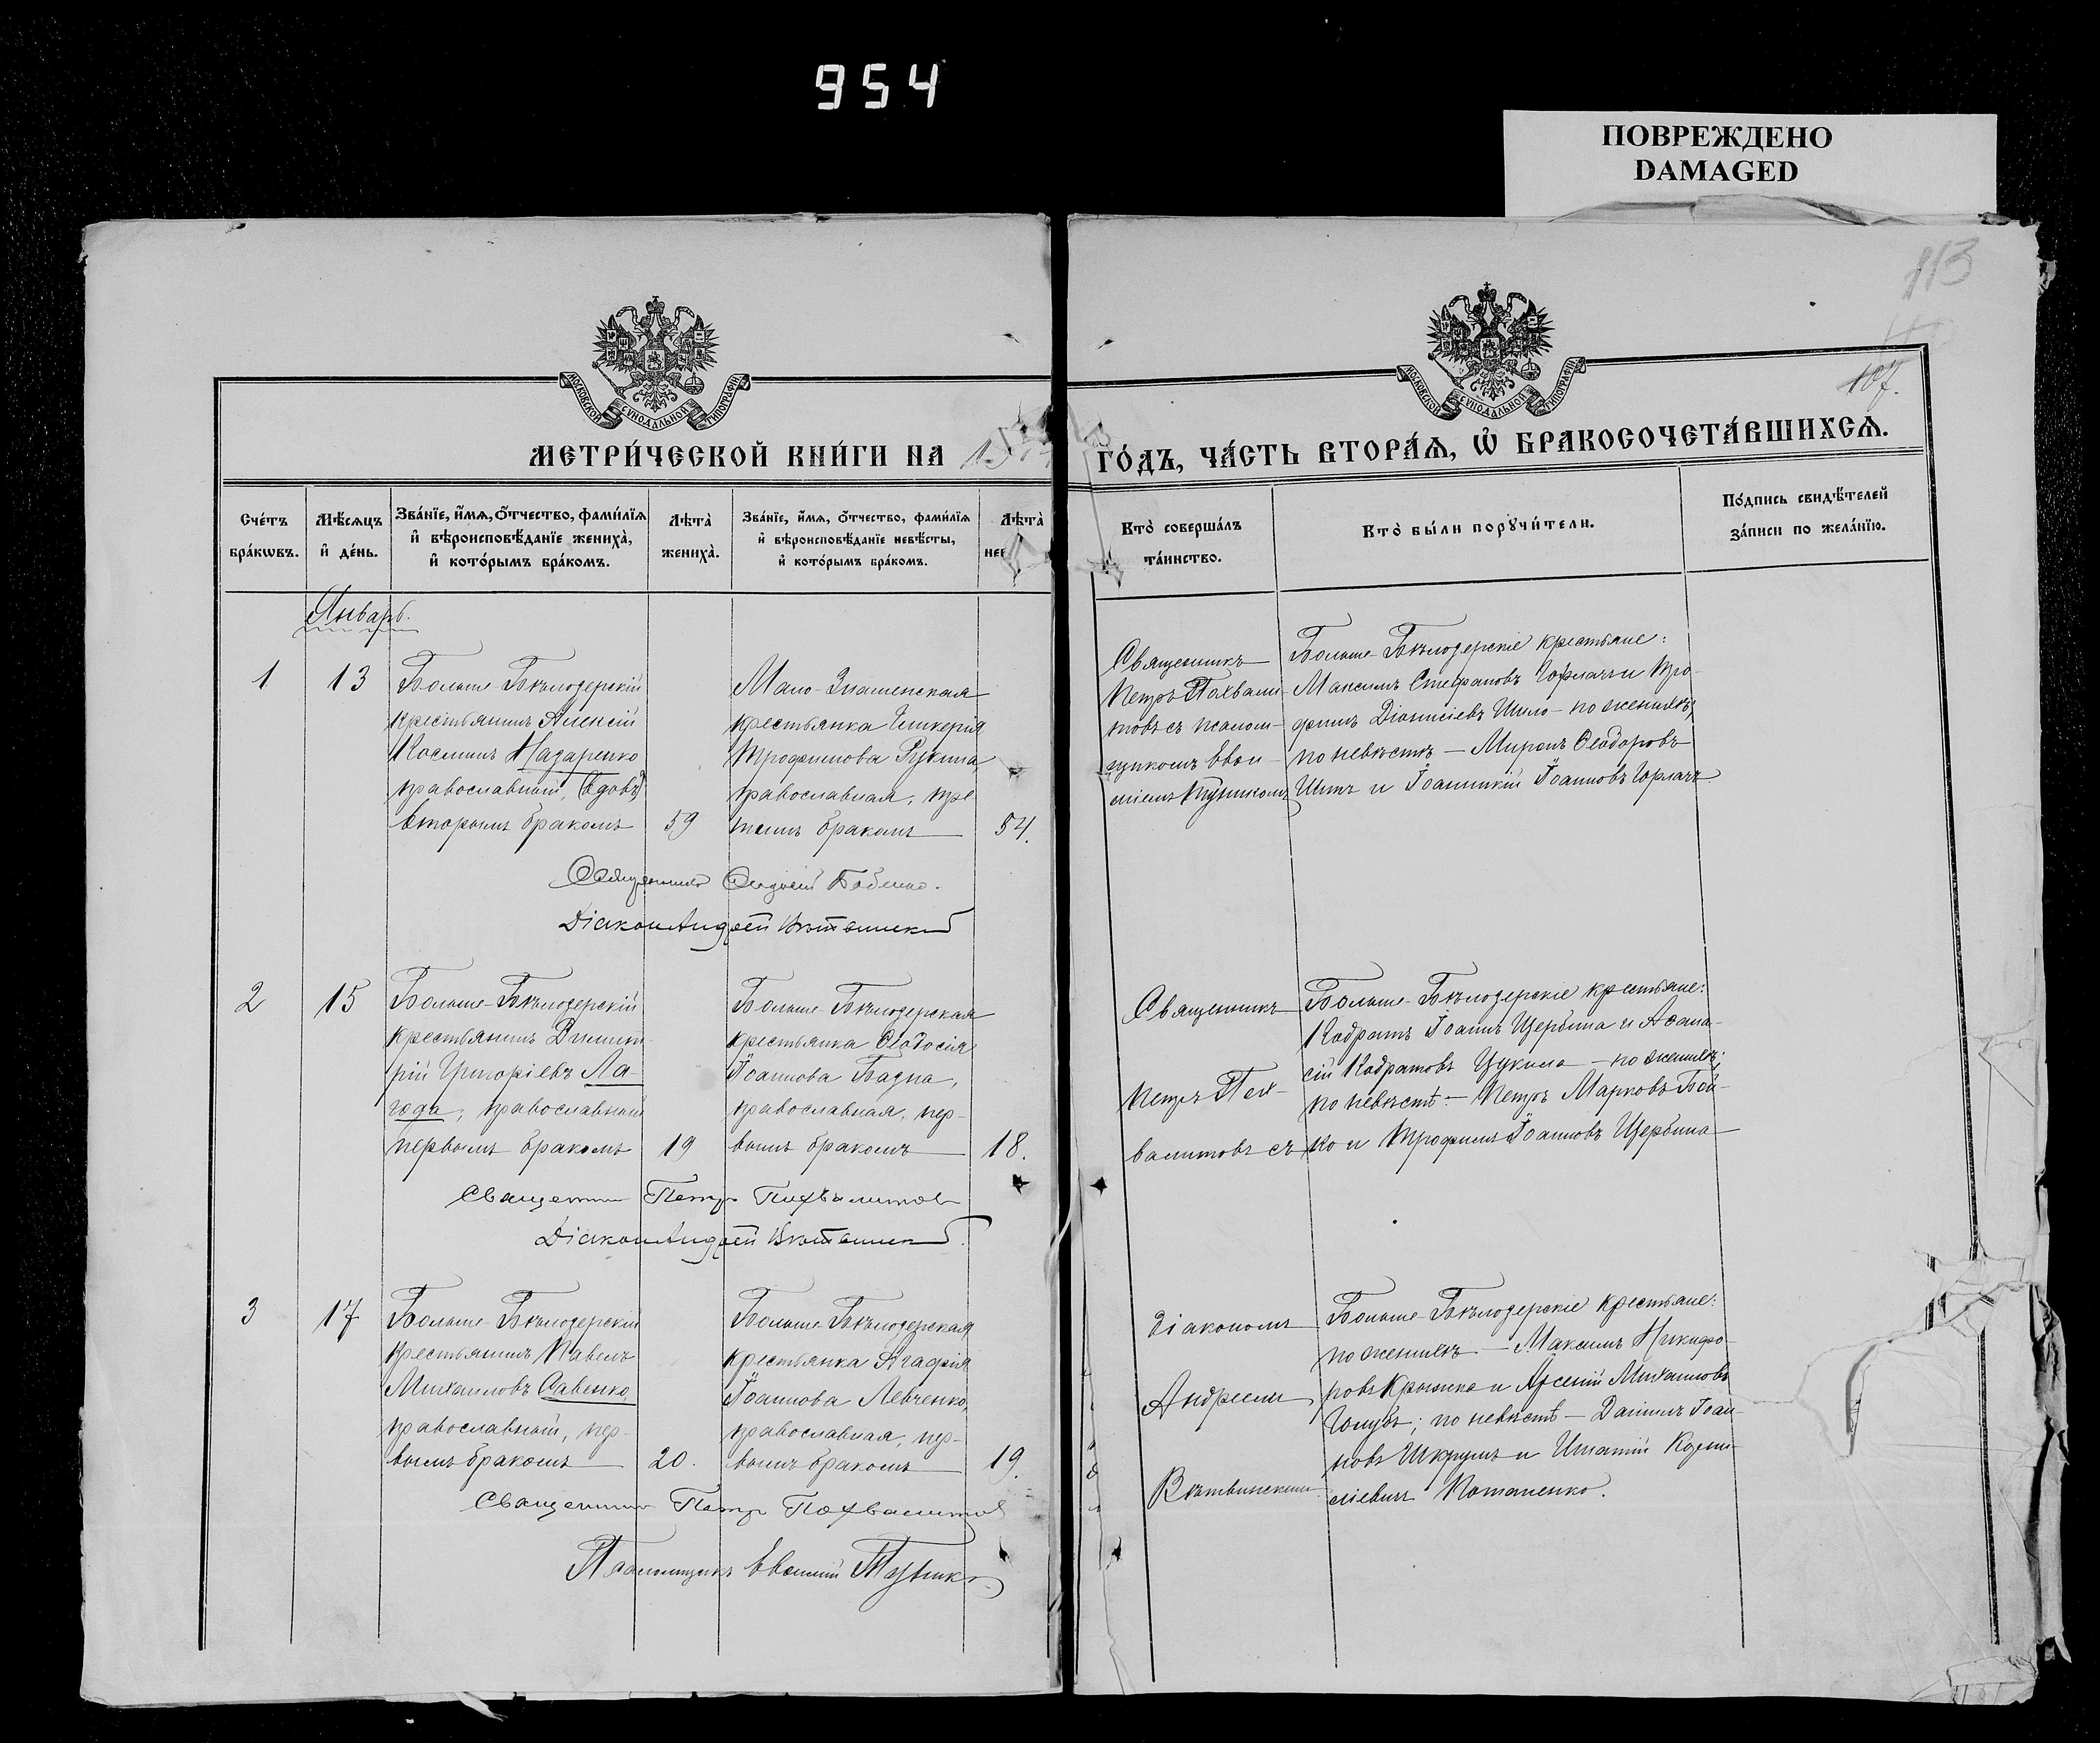 954
ПОВРЕЖДЕНО
DAMAGED
113
107.
МОСКОВСКОЙ СѴНОДАЛЬНОЙ ТИПОГРАФІИ
МОСКОВСКОЙ СѴНОДАЛЬНОЙ ТИПОГРАФІИ
МЕТРИ́ЧЕСКОЙ КНИ́ГИ НА
ГО́ДЪ, ЧА́СТЬ ВТОРА́Ѧ, Ѡ҆ БРАКОСОЧЕТА́ВШИХСѦ.
Счетъ бра́кѡвъ.
Мѣ́сѧцъ и҆ де́нь.
Зва́нїе, и҆́мѧ, ѻ҆́тчество, фами́лїѧ
и҆ вѣроисповѣ́данїе жениха̀,
и҆ кото́рымъ бра́комъ.
Лѣта̀
жениха̀.
Зва́нїе, и҆́мѧ, ѻ҆́тчество, фами́лїѧ
и҆ вѣроисповѣ́данїе невѣ́сты,
и҆ кото́рымъ бра́комъ.
Лѣта̀
нев
Кто̀ соверша́лъ
та́инство.
Кто̀ бы́ли порꙋчи́тели.
По́дпись свидѣ́телей
за́писи по жела́нїю.
Январь.
1
13
Больше-Бѣлозерскій
крестьянинъ Алексій
Косминъ Назаренко
православный, (вдовъ)
вторымъ бракомъ
59
Мало-Знаменская
крестьянка Гликерія
Трофимова Рукина,
православная, тре
тьимъ бракомъ
54.
Священникъ
Петръ Похвали-
товъ съ псалом-
щикомъ Евѳи-
міемъ
Больше-Бѣлозерскіе крестьяне:
Максимъ Стефановъ Горлачъ и Тро-
фимъ Діонисіевъ Шило - по женихѣ;
по невѣстѣ — Миронъ Ѳеодоровъ
и Іоанникій Іоанновъ Горлачъ
Священникъ
Діаконъ Андрей Вѣтвинскій
2
15
Больше-Бѣлозерскій
крестьянинъ Димит-
рій Григоріевъ Ла-
года, православный
первымъ бракомъ
19
Больше-Бѣлозерская
крестьянка Ѳеодосія
Іоаннова Бадна,
православная, пер-
вымъ бракомъ
18.
Священникъ
Петръ Пох-
валитовъ съ
Больше-Бѣлозерскіе крестьяне:
Кодратъ Іоанновъ Щербина и Аѳана-
сій Кодратовъ — по женихѣ;
по невѣстѣ — Петръ Марковъ Бой-
ко и Трофимъ Іоанновъ Щербина
Священникъ Петръ Похвалитовъ
Діаконъ Андрей Вѣтвинскій.
3
17
Больше-Бѣлозерскій
крестьянинъ Павелъ
Михаиловъ Савенко,
православный, пер-
вымъ бракомъ
20.
Больше-Бѣлозерская
крестьянка Агафія
Іоаннова Левченко,
православная, пер-
вымъ бракомъ
19.
діакономъ
Андреемъ
Вѣтвинскимъ
Больше-Бѣлозерскіе крестьяне:
по женихѣ — Максимъ Никифо-
ровъ и Арсеній Михаиловъ
Голубъ; по невѣстѣ — Даніилъ Іоан-
новъ и Игнатій
Потапенко.
Священникъ Петръ Похвалитовъ
Псаломщикъ Евѳимій